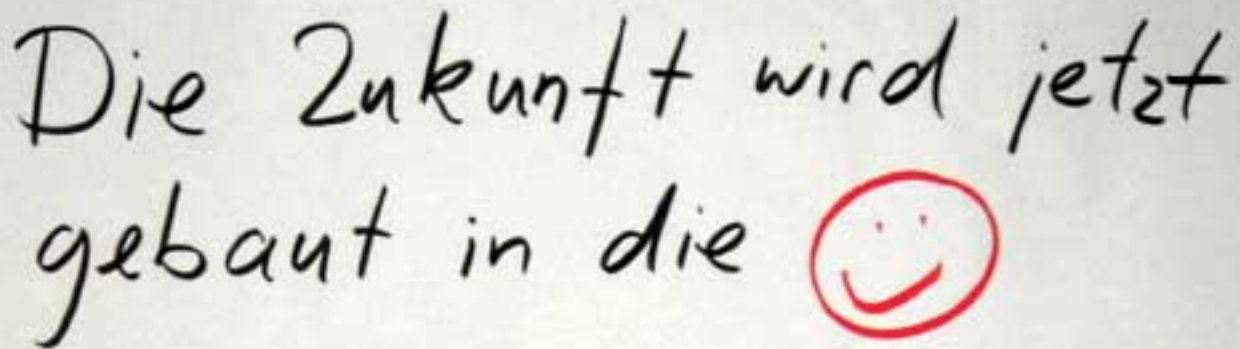 Die Zukunft wird jetzt
gebaut in die